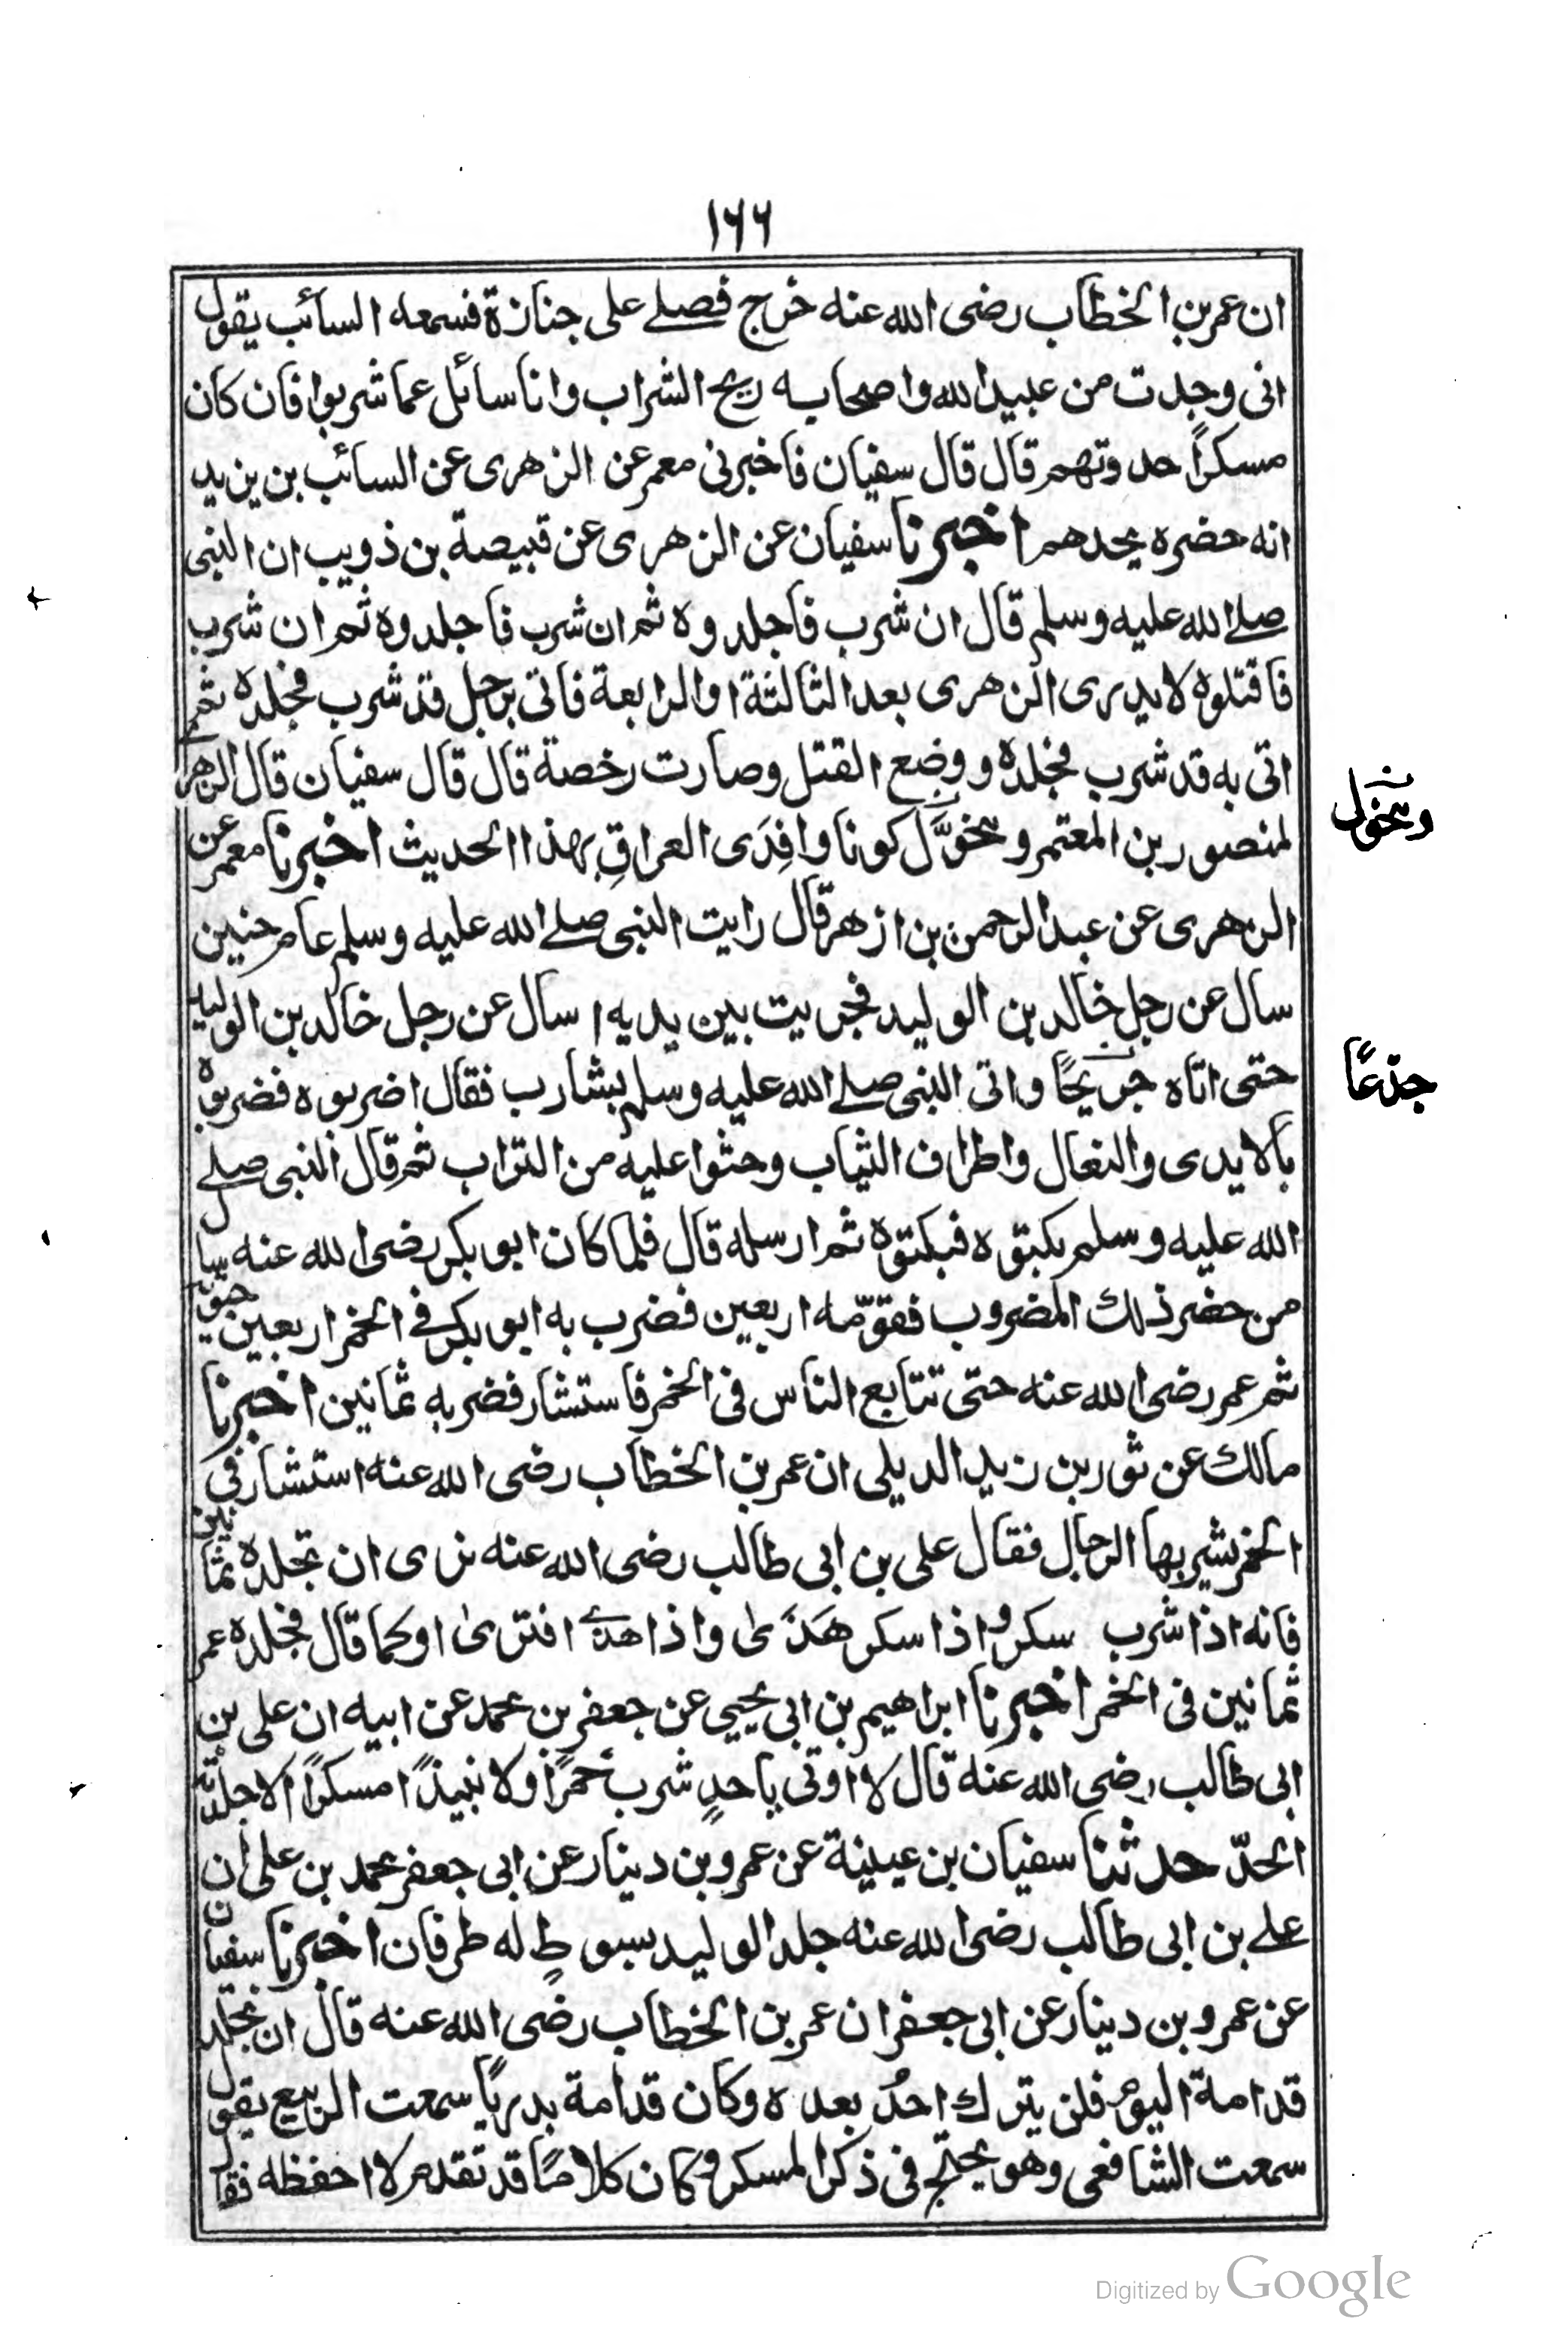 ١٦٦
ان عمر بن الخطاب رضى الله عنه خرج فصلے على جنازة فسمعه السائب يقول
انى وجدت من عبيد الله واصحابه ريح الشراب وانا سائل عما شربوا فان كان
مسكراً حدوتهم قال قال سفيان فاخبرنى معمر عن الزهرى عن السائب بن يزيد
انه حضره يحدهم اخبرنا سفيان عن الزهرى عن قبيصة بن ذويب ان النبى
صلے الله عليه وسلم قال ان شرب فاجلدوه ثم ان شرب فاجلدوه ثم ان شرب
فاقتلوه لا يدرى الزهرى بعد الثالثة او الرابعة فاتى برجل قد شرب فجلده ثم
اتى به قد شرب فجلده ووضع القتل وصارت رخصة قال قال سفيان قال الزهر
لمنصور بن المعتمر ومخوَّل كونا وافِدَى العراقِ بهذا الحديث اخبرنا معمر عن
ومخول
الزهرى عن عبد الرحمن بن ازهر قال رايت النبى صلے الله عليه وسلم عام حنين
سال عن رجل خالد بن الوليد فجريت بين يديه اسال عن رجل خالد بن الوليد
حتى اتاه جريحًا واتى النبى صلے الله عليه وسلم بشارب فقال اضربوه فضربوه
جذعًا
بالايدى والنعال واطراف الثياب وحثوا عليه من التراب ثم قال النبى صلے
الله عليه وسلم بكتوه فبكتوه ثم ارسله قال فلما كان ابو بكر رضى الله عنه سال
من حضر ذلك المضروب فقوّمه اربعين فضرب به ابو بكر فے الخمر اربعين حيوته
ثم عمر رضى الله عنه حتى تتايع الناس فى الخمر فاستشار فضربه ثمانين اخبرنا
مالك عن ثور بن زيد الديلى ان عمر بن الخطاب رضى الله عنه استشار فى
الخمر يشربها الرجل فقال على بن ابى طالب رضى الله عنه نرى ان تجلده ثمانين
فانه اذا شرب سكر واذا سكر هَذَى واذا هذے افترى او كما قال فجلده عمر
ثمانين فى الخمر اخبرنا ابراهيم بن ابى يحيى عن جعفر بن محمد عن ابيه ان على بن
ابى طالب رضى الله عنه قال لا اوتى باحدٍ شرب خمرًا ولا نبيذًا مسكرًا الا جلدته
الحدّ حدثنا سفيان بن عيينة عن عمرو بن دينار عن ابى جعفر محمد بن على ان
علے بن ابى طالب رضى الله عنه جلد الوليد بسوطٍ له طرفان اخبرنا سفيان
عن عمرو بن دينار عن ابى جعفر ان عمر بن الخطاب رضى الله عنه قال ان نجلد
قدامة اليوم فلن يترك احدٌ بعده وكان قدامة بدريًا سمعت الربيع يقول
سمعت الشافعى وهو يحتج فى ذكر المسكر وكان كلامًا قد تقدم لا احفظه فقال
Digitized by Google